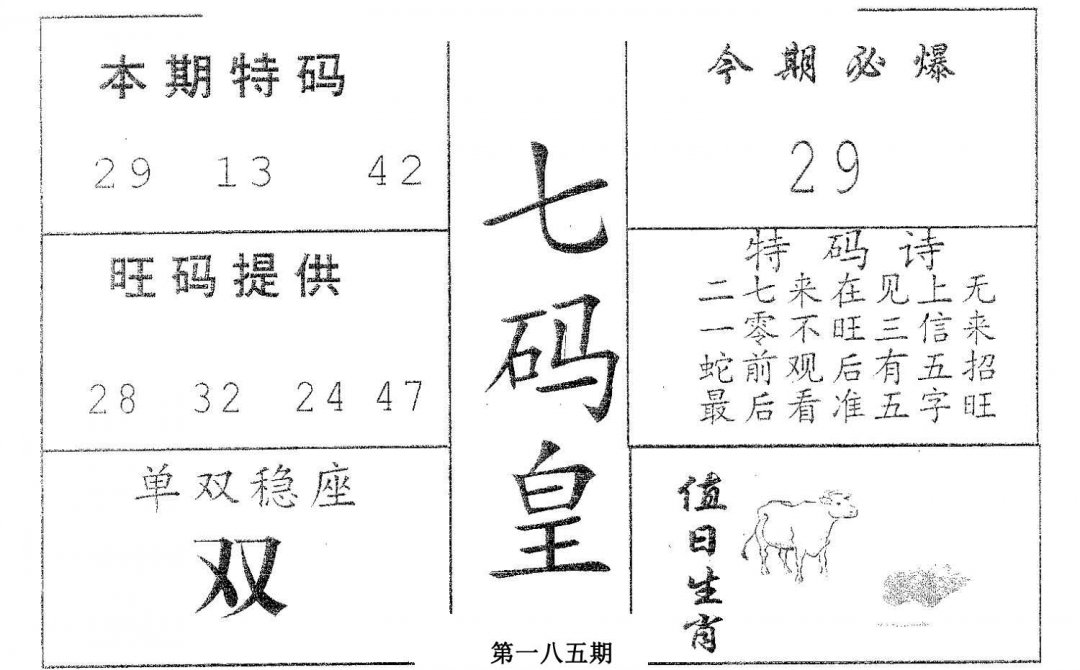 本期特码
29 13 42
旺码提供
28 32 24 47
单双稳座
双
七码皇
第一八五期
今期必爆
29
特码诗
二七来在见上无
一零不旺三信来
蛇前观后有五招
最后看准五字旺
值日生肖